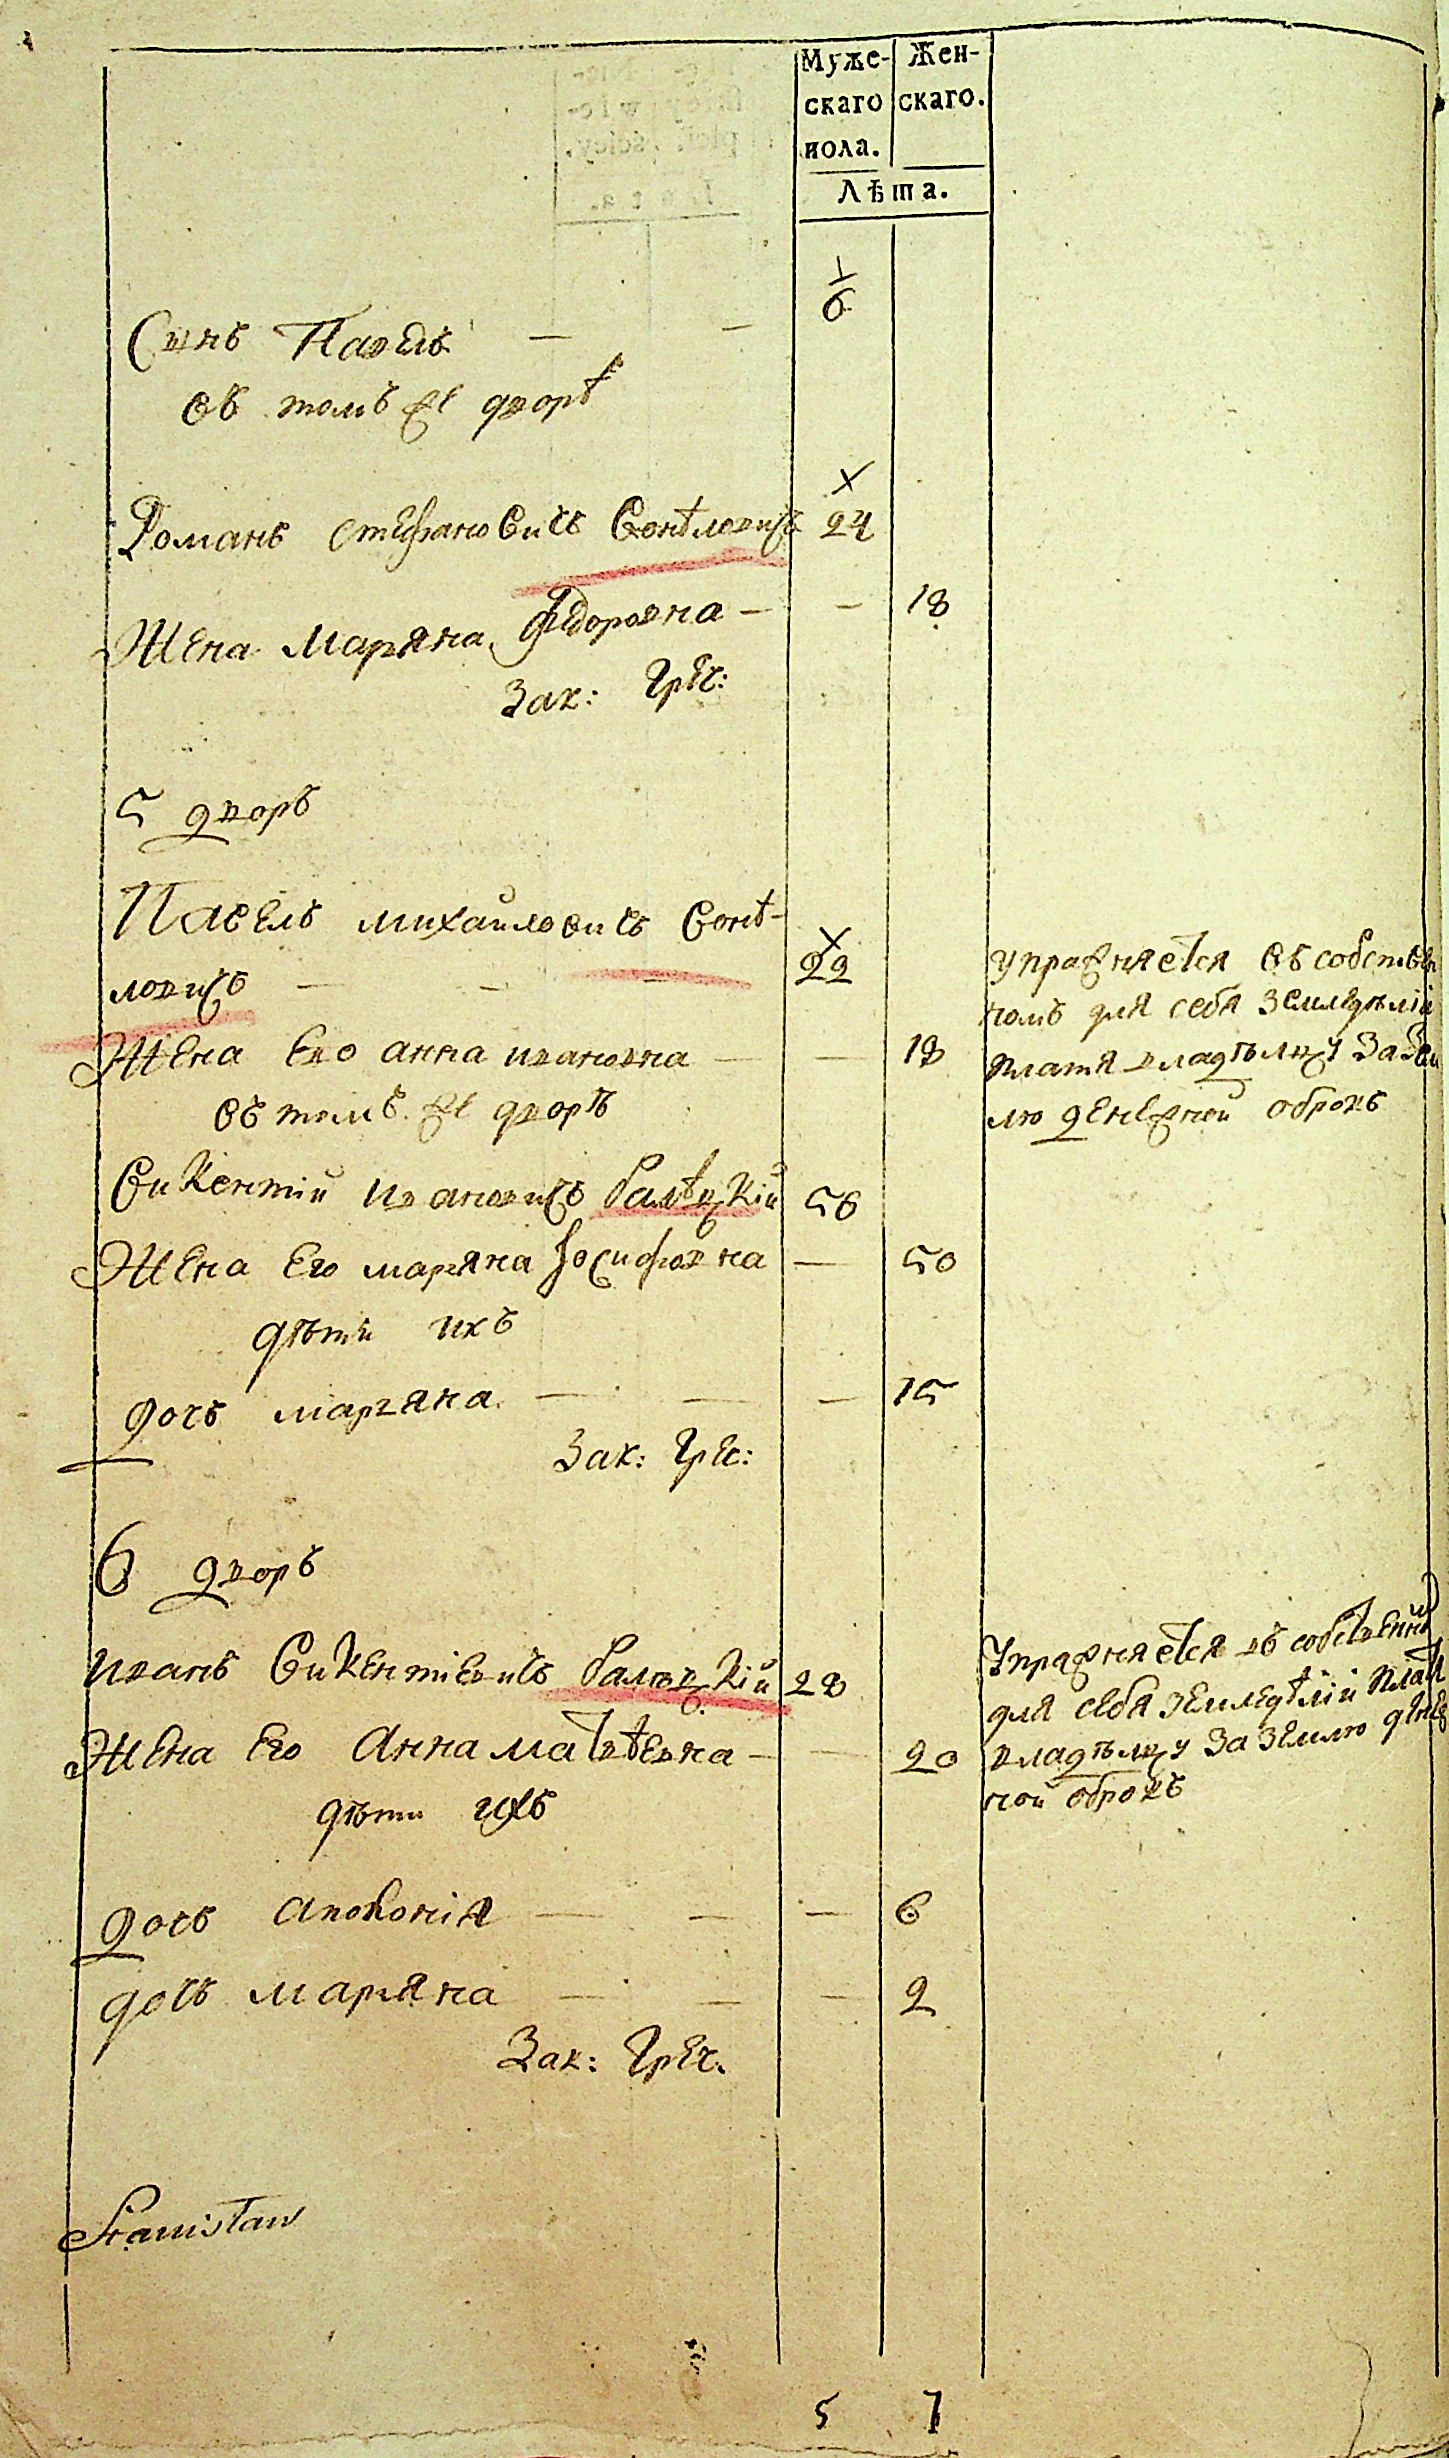 Муже- Жен-
скаго скаго.
пола.
Лѣта.
1/6
Сынъ Павелъ — —
въ томъ же дворѣ
х
Романъ Стефановичъ Вонѣловичъ 24
Жена Маряна Федоровна — — 18
Зак: Греч:
5 дворъ
Павелъ Михайловичъ Вонѣ-
х
ловичъ — — — 22
Жена Ево Анна Ивановна — — 18
въ томъ же дворѣ
Упражняется въ собствен
номъ для себя земледѣлій
платя владѣлцу за зем
лю денежной оброкъ
Викентій Ивановичъ Балѣцкій 56
Жена Его Маряна Іосифовна — 50
дѣти ихъ
дочь Марьяна — — — 15
Зак: Греч:
6 дворъ
Иванъ Викентіевичъ Балѣцкій 28
Жена Его Анна Матвѣевна — — 20
дѣти ихъ
Упражняется въ собственно
для себя земледѣлій платя
владѣлцу за землю денеж
ной оброкъ
дочь Аполонія — — — 6
дочь Маряна — — — 2
Зак: Греч.
Stanisław
5 7